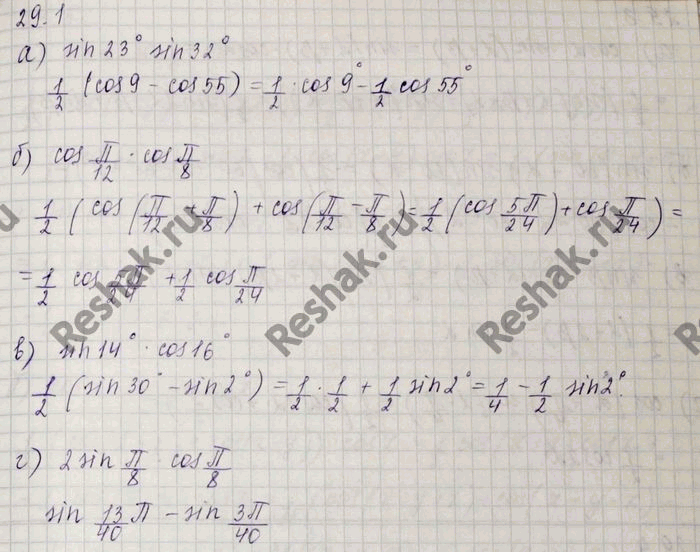 29.1
а) sin 23° sin 32°
1/2 (cos 9 - cos 55) = 1/2 · cos 9° - 1/2 cos 55°
б) cos π/12 · cos π/8
1/2 (cos (π/12 + π/8) + cos (π/12 - π/8) = 1/2 (cos 5π/24) + cos π/24) =
= 1/2 cos 5π/24 + 1/2 cos π/24
в) sin 14° · cos 16°
1/2 (sin 30° - sin 2°) = 1/2 · 1/2 + 1/2 sin 2° = 1/4 - 1/2 sin 2°.
г) 2 sin π/8 · cos π/8
sin 13/40 π - sin 3π/40
Reshak.ru
Reshak.ru
Reshak.ru
Reshak.ru